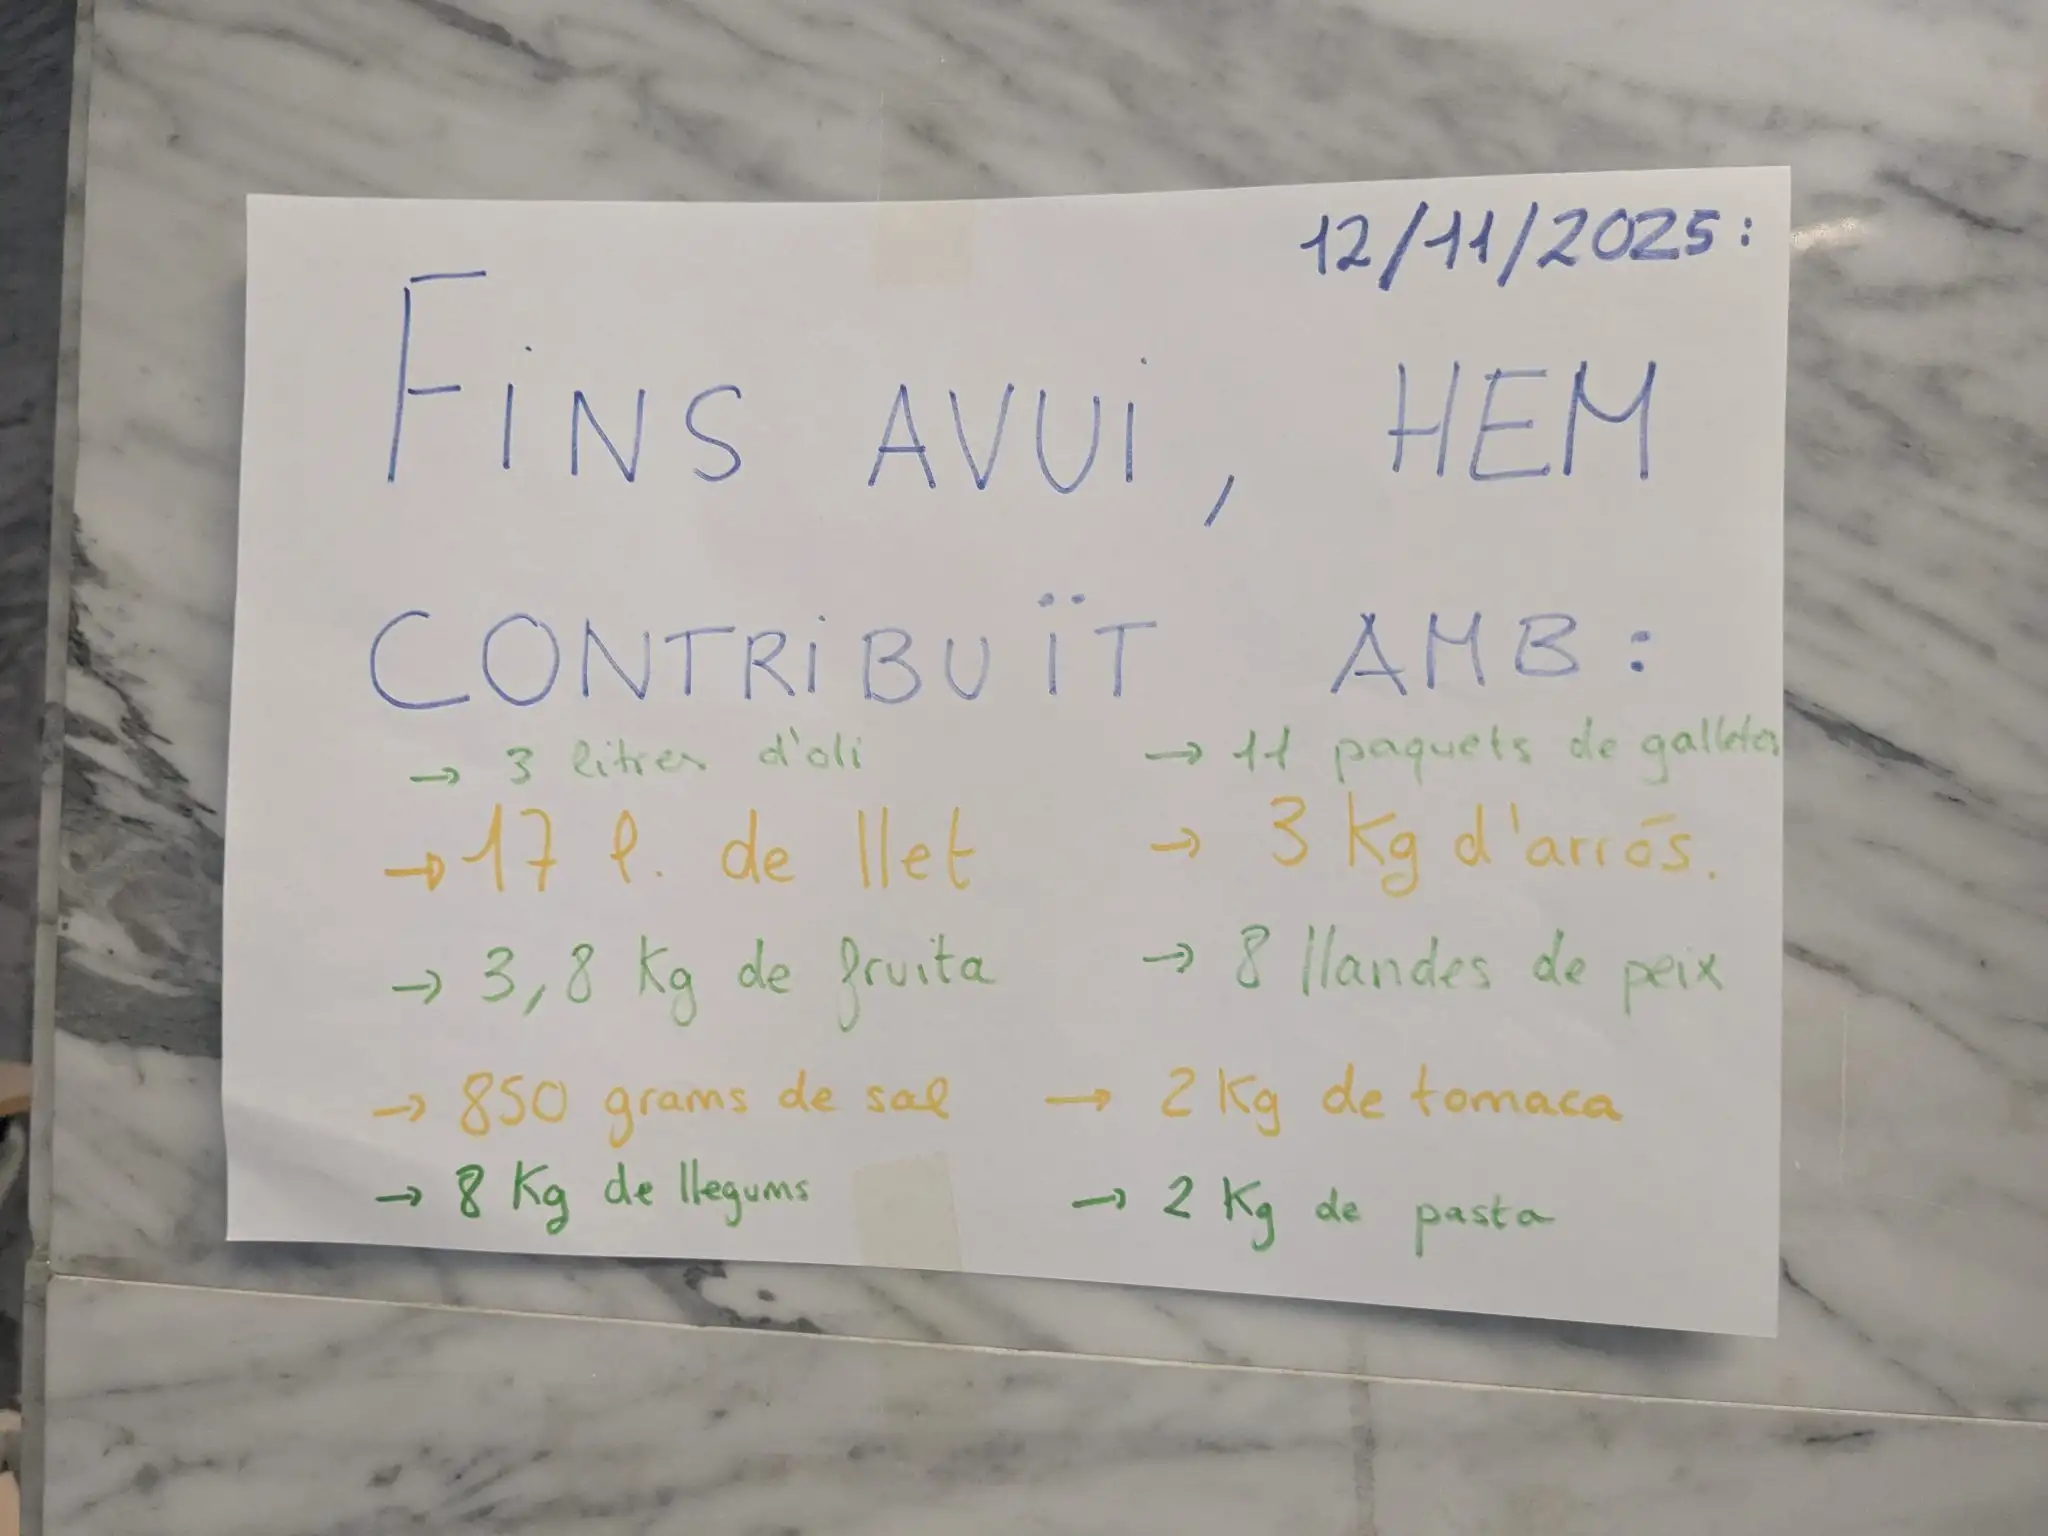 12/11/2025:
FiNS AVUi, HEM
CONTRiBUÏT AMB:
→ 3 litres d'oli
→ 17 l. de llet
→ 3,8 Kg de fruita
→ 850 grams de sal
→ 8 Kg de llegums
→ 11 paquets de galletes
→ 3 Kg d'arròs.
→ 8 llandes de peix
→ 2 Kg de tomaca
→ 2 Kg de pasta